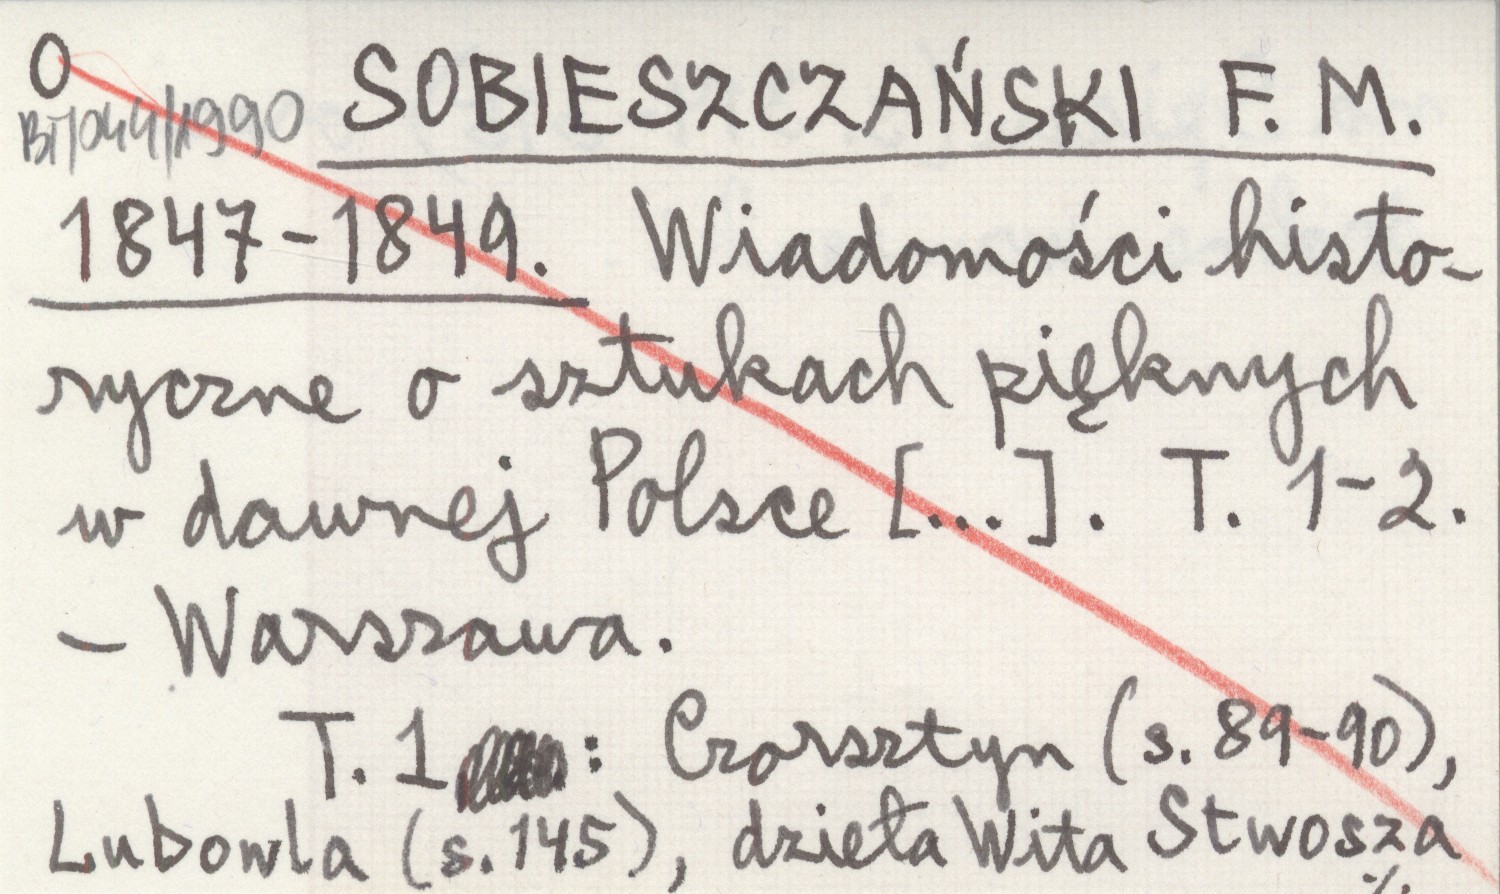 O
SOBIESZCZAŃSKI F. M.
Bi/044/1990
1847-1849. Wiadomości histo-
ryczne o sztukach pięknych
w dawnej Polsce [...]. T. 1-2.
– Warszawa.
T. 1 : Czorsztyn (s. 89-90),
Lubowla (s. 145), dzieła Wita Stwosza
./.